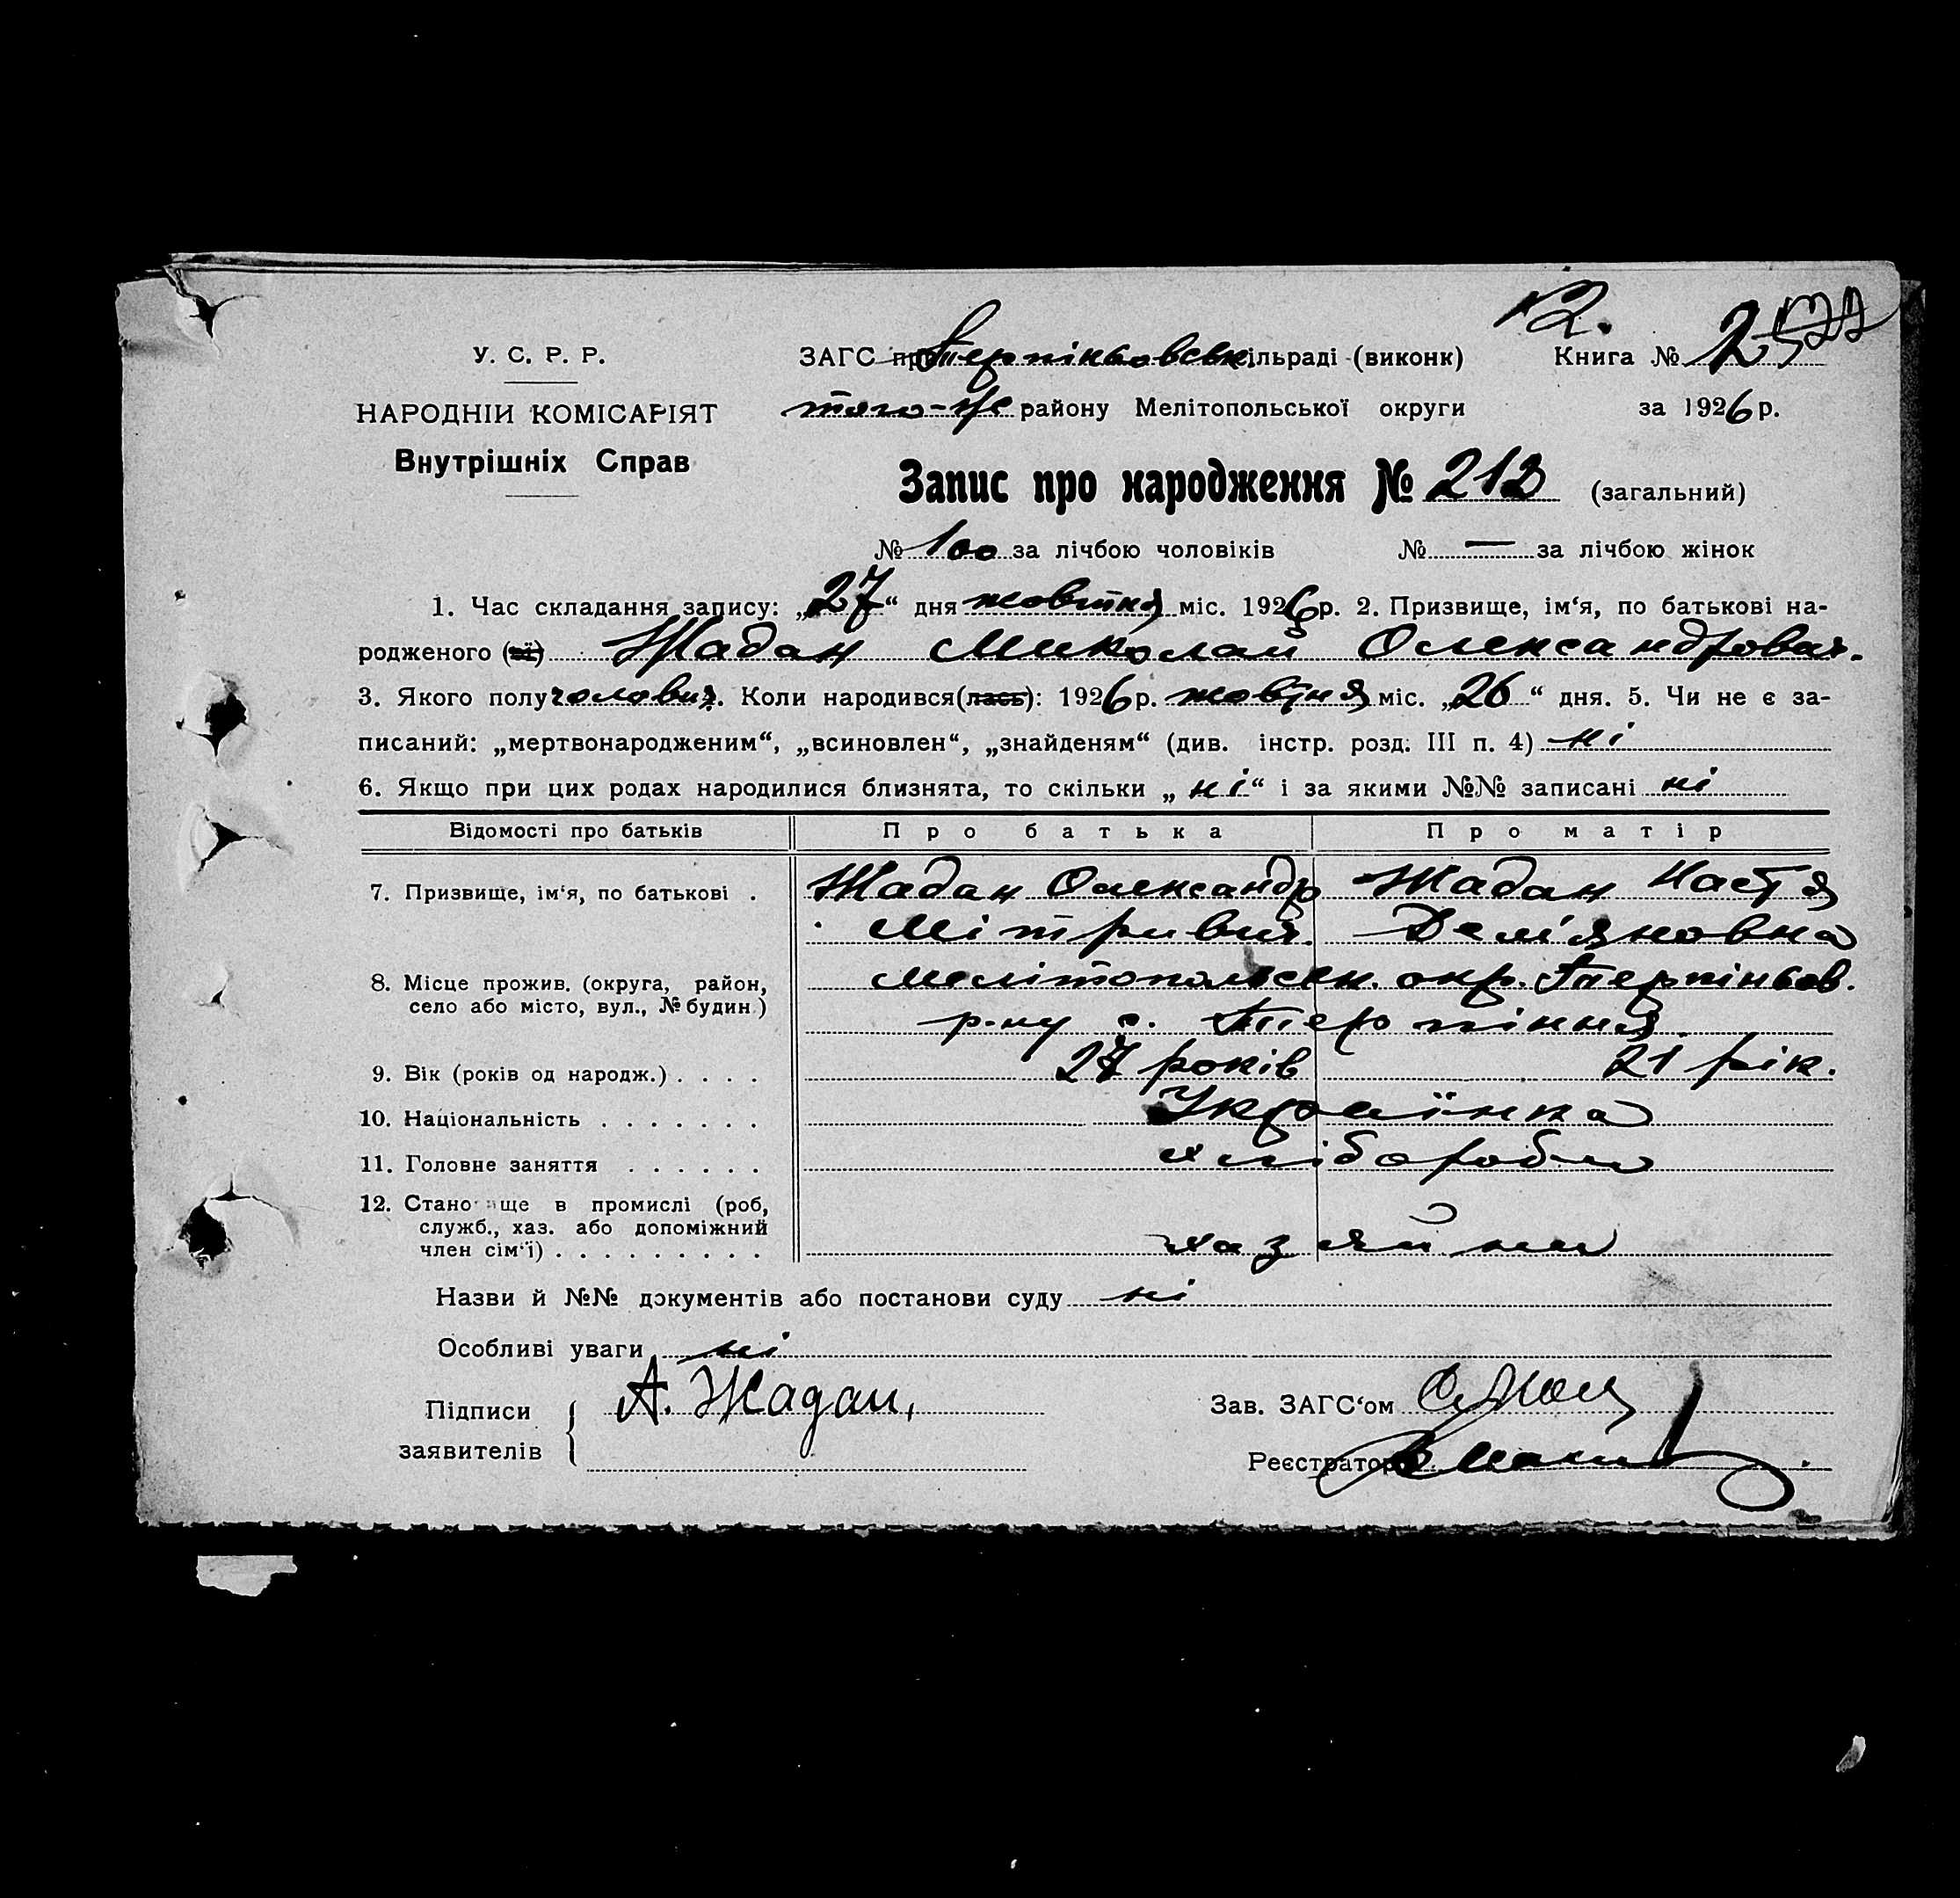 12.
У. С. Р. Р.
ЗАГС при Терпіньовськ. сільраді (виконк)
Книга № 2
НАРОДНІЙ КОМІСАРІЯТ
того-ж району Мелітопольської округи
за 1926 р.
Внутрішніх Справ
Запис про народження № 212 (загальний)
№ 100 за лічбою чоловіків № — за лічбою жінок
1. Час складання запису: „27“ дня жовтня міс. 1926 р. 2. Призвище, ім‘я, по батькові на-
родженого (ої) Жадан Миколай Олександрович.
3. Якого полу чоловіч. Коли народився(лась): 1926 р. жовтня міс. „26“ дня. 5. Чи не є за-
писаний: „мертвонародженим“, „всиновлен“, „знайденям“ (див. інстр. розд. III п. 4) ні
6. Якщо при цих родах народилися близнята, то скільки „ні“ і за якими №№ записані ні
Відомості про батьків Про батька Про матір
7. Призвище, ім‘я, по батькові . Жадан Олександр Жадан Настя
Мітривич. Дем‘яновна
8. Місце прожив. (округа, район, мелітопольськ. окр. Терпіньов.
село або місто, вул., № будин.)
р-ну с. Терпіння
9. Вік (років од народж.) . . . . 27 років 21 рік.
10. Національність . . . . . . . Українка
11. Головне заняття . . . . . . хлібороби
12. Становище в промислі (роб,
служб., хаз. або допоміжний
член сім‘ї) . . . . . . . . . хазяйни
Назви й №№ документів або постанови суду ні
Особливі уваги ні
Підписи
заявителів
А. Жадан,
Зав. ЗАГС‘ом
Реєстратор